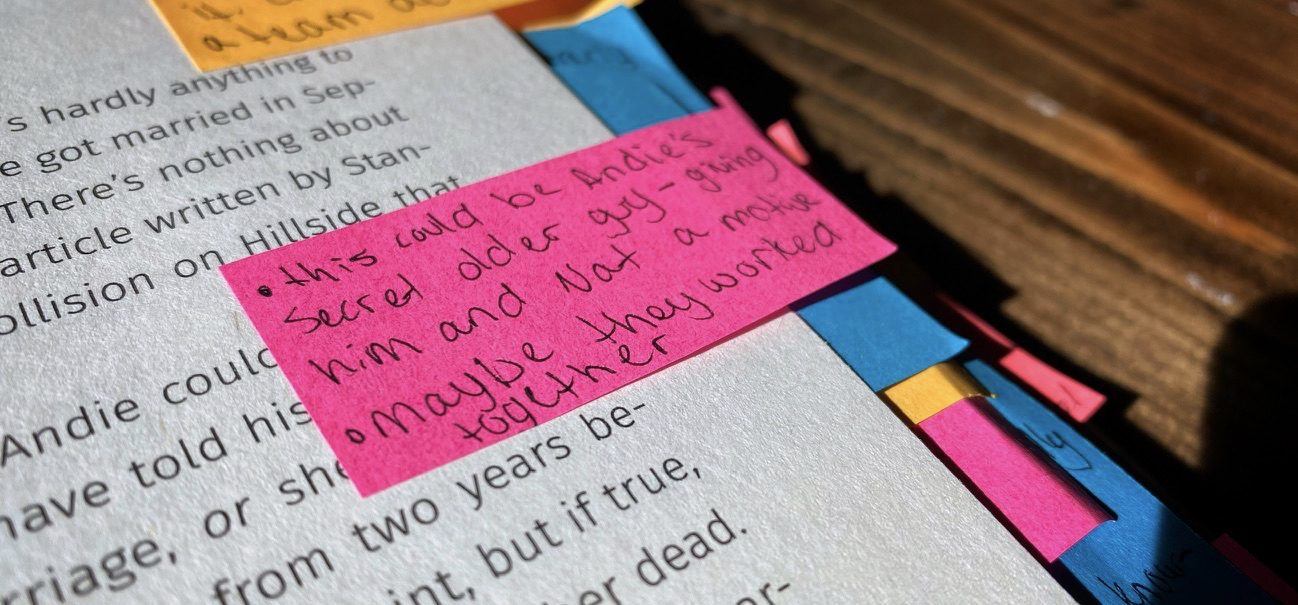 a team
's hardly anything to
e got married in Sep-
There's nothing about
article written by Stan-
ollision on Hillside that
• this could be Andie's
secret older guy - giving
him and Nat a motive
• maybe they worked
together
Andie could
have told his
rriage, or she
from two years be-
int, but if true,
er dead.
or-
ly
know-